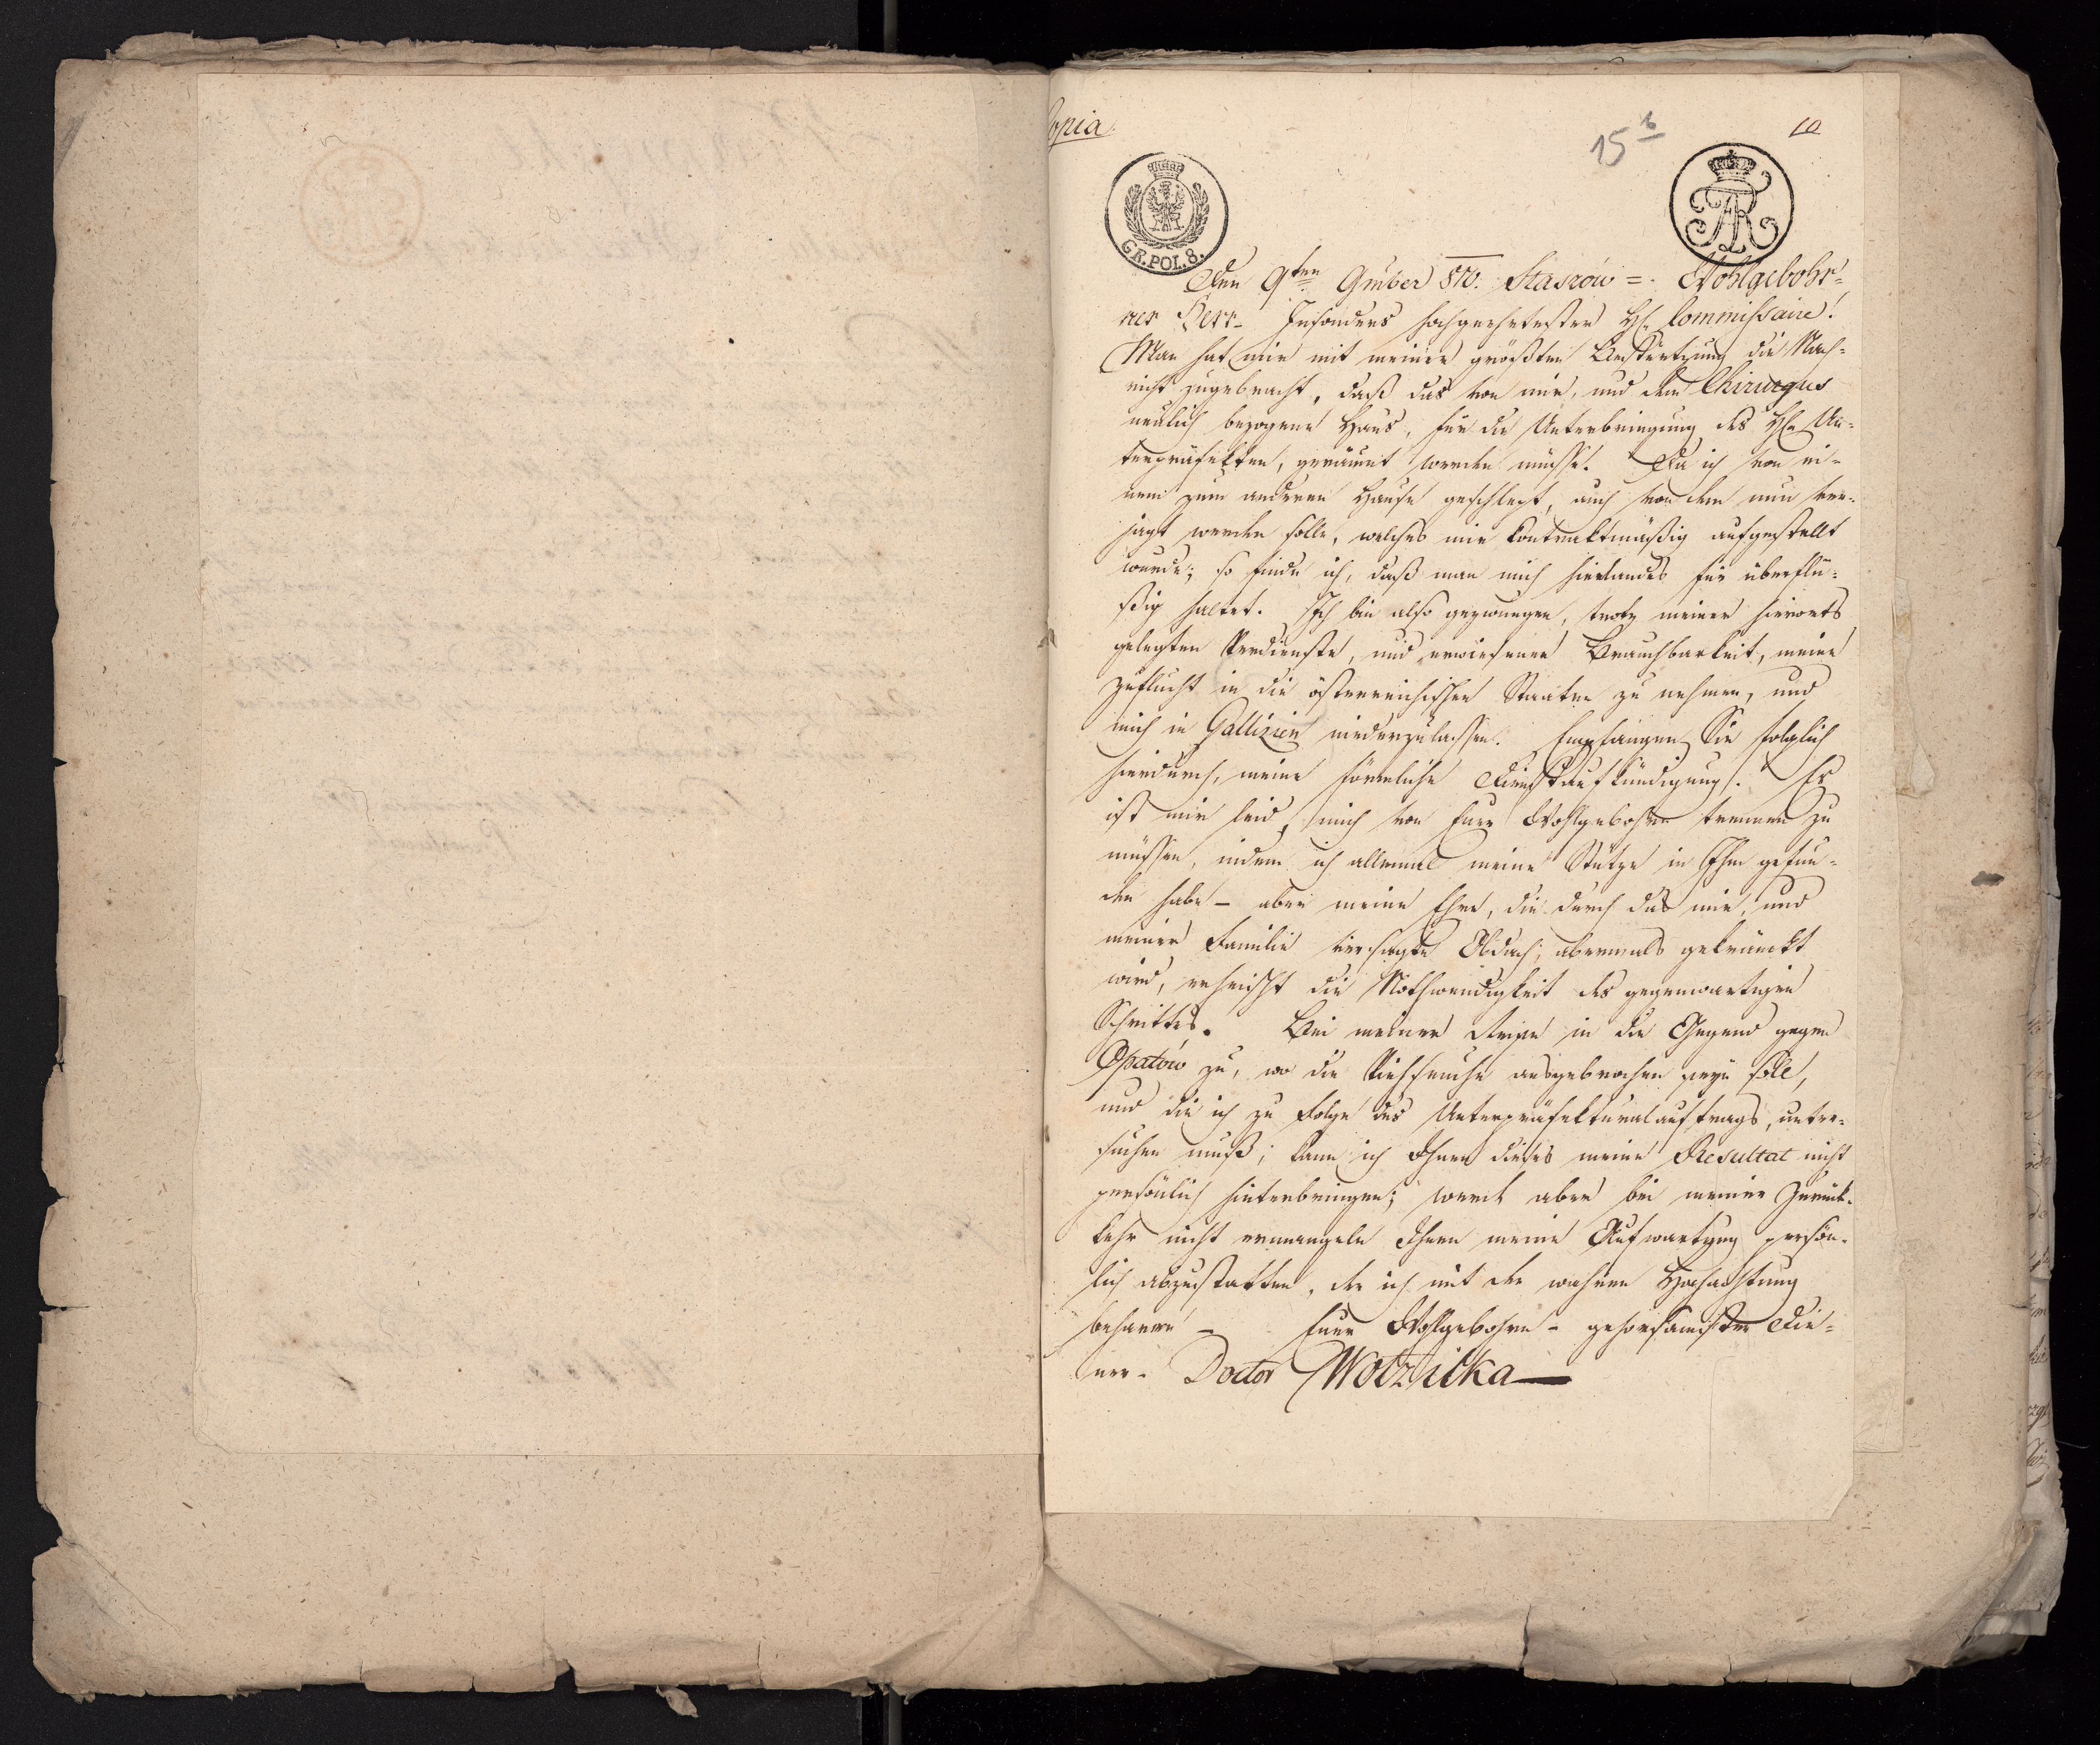 Copia
15 b
10
GR. POL. 8.
Den 9ten 9mber 810. Staszów =. Wohlgebohr=
ner Herr- Insonders hochgeehrtester H. Commissaire!
Man hat mir mit meiner größten Bestürtzung die Nach=
richt zugebracht, daß das von mir, und dem Chirurgus
neulich bezogene Haus, für die Unterbringung des H. Un=
terpräfekten, geräumt werden müsse. Da ich von ei=
nem zum anderen Hause geschlept, auch von dem nun ver=
jagt werden solle, welches mir kontraktmäßig aufgestellt
wurde; so finde ich, daß man mich hierlandes für überflü=
ßig haltet. Ich bin also gezwungen, trotz meiner hierorts
gelegten Verdienste, und erwiesener Brauchbarkeit, meine
Zuflucht in die österreichischen Staaten zu nehmen, und
mich in Gallizien niederzulassen. Empfangen Sie folglich
hierdurch, meine förmliche Dienstaufkündigung. Es
ist mir leid, mich von Euer Wohlgebohrn trennen zu
müssen, indem ich allemal meine Stütze in Ihm gefun=
den habe – aber meine Ehre, die durch das mir, und
meiner Familie versagte Obdach, abermals gekränckt
wird, erheischt die Nothwendigkeit des gegenwartigen
Schrittes. Bei meiner Reise in die Gegend gegen
Opatów zu, wo die Viehseuche ausgebrochen seyn soll,
und die ich zu Folge des Unterpräfekturalauftrags, unter=
suchen muß; kann ich Ihnen dieses meine Resultat nicht
persönlich hinterbringen; werde aber bei meiner Zurück=
kehr nicht ermangeln Ihnen meine Aufwartung persön=
lich abzustatten, der ich mit der wahren Hochachtung
beharre – Euer Wohlgebohrn – gehorsamster Die=
ner – Doctor Wotzilka